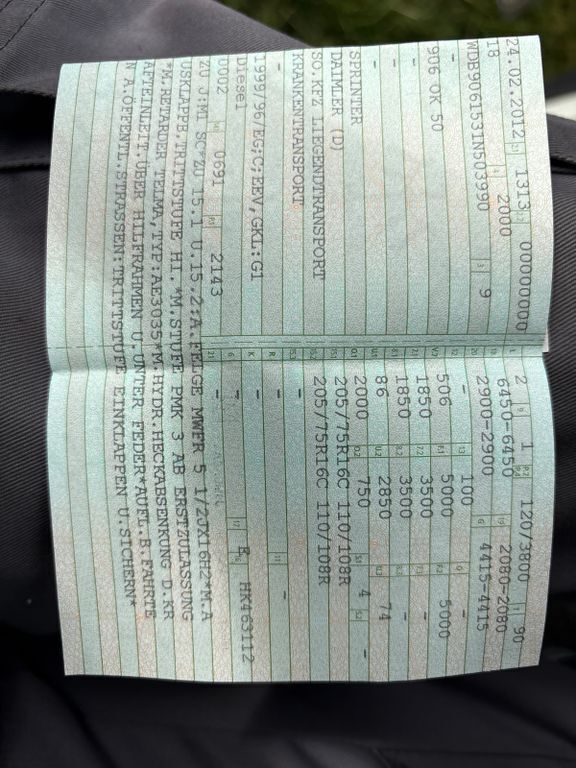 24.02.2012 1313 00000000
18 2000 9
WDB9061531N503990
906 OK 50
-
-
SPRINTER
DAIMLER (D)
SO.KFZ LIEGENDTRANSPORT
KRANKENTRANSPORT
-
1999/96/EG;C;EEV,GKL:G1
Diesel
0002 0691 2143
2 1 120/3800 90
6450-6450 2080-2080
2900-2900 4415-4415
- 100 -
506 5000 5000
1850 3500 -
1850 3500 -
86 2850 74
2000 750 4 -
205/75R16C 110/108R
205/75R16C 110/108R
-
- -
- E HK463112
-
ZU J:M1 SC*ZU 15.1 U.15.2:A.FELGE MWFR 5 1/2JX16H2*M.A
USKLAPPB.TRITTSTUFE HI. *M.STUFE PMK 3 AB ERSTZULASSUNG
*M.RETARDER TELMA,TYP:AE3035*M.HYDR.HECKABSENKUNG D.KR
AFTEINLEIT.ÜBER HILFRAHMEN U.UNTER FEDER*AUFL.B.FAHRTE
N A.ÖFFENTL.STRASSEN:TRITTSTUFE EINKLAPPEN U.SICHERN*